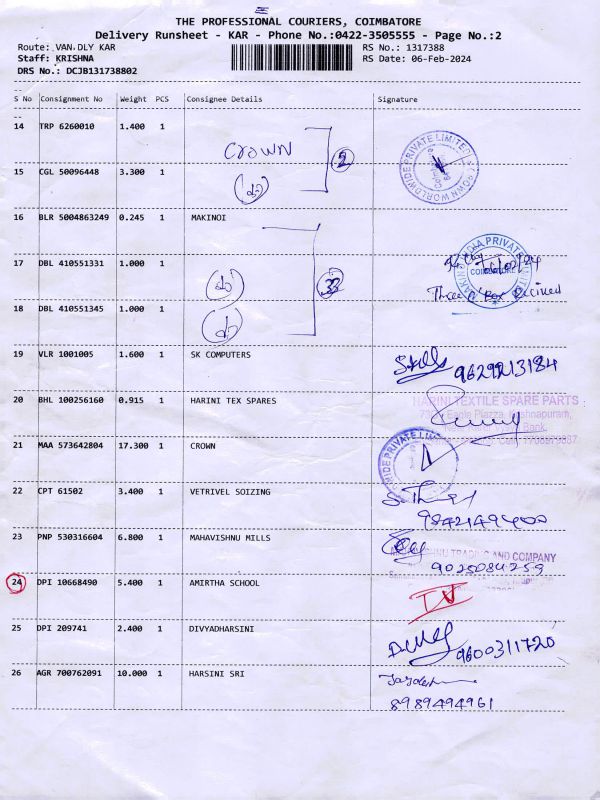 THE PROFESSIONAL COURIERS, COIMBATORE
Delivery Runsheet - KAR - Phone No.:0422-3505555 - Page No.:2
Route: VAN DLY KAR RS No.: 1317388
Staff: KRISHNA RS Date: 06-Feb-2024
DRS No.: DCJB131738802
S No Consignment No Weight PCS Consignee Details Signature
14 TRP 6260010 1.400 1
CROWN
2
15 CGL 50096448 3.300 1
16 BLR 5004863249 0.245 1 MAKINOI
17 DBL 410551331 1.000 1
Three Box Received
18 DBL 410551345 1.000 1
19 VLR 1001005 1.600 1 SK COMPUTERS
9629213184
20 BHL 100256160 0.915 1 HARINI TEX SPARES
HARINI TEXTILE SPARE PARTS
21 MAA 573642804 17.300 1 CROWN
22 CPT 61502 3.400 1 VETRIVEL SOIZING
9842149400
23 PNP 530316604 6.800 1 MAHAVISHNU MILLS
TRADING AND COMPANY
9025084259
24 DPI 10668490 5.400 1 AMIRTHA SCHOOL
25 DPI 209741 2.400 1 DIVYADHARSINI
9600311720
26 AGR 700762091 10.000 1 HARSINI SRI
8989494961